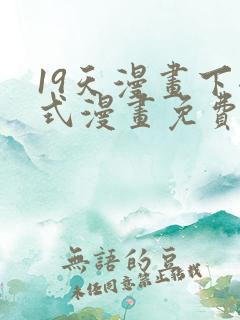 19天漫畫下
式漫畫免費
無語的豆
未任同意禁止轉載